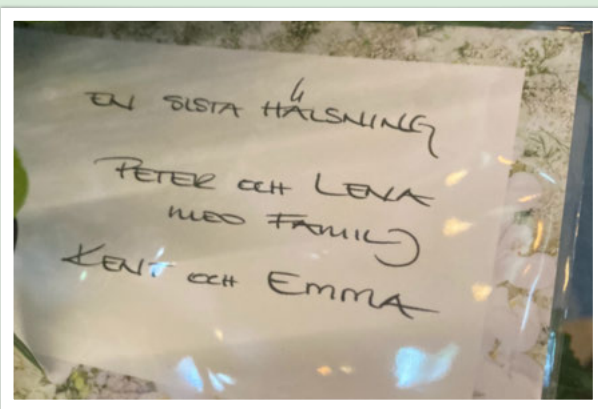 EN SISTA HÄLSNING
PETER OCH LENA
MED FAMILJ
KENT OCH EMMA